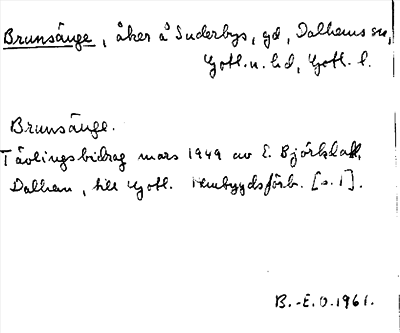 Brunsänge, åker å Suderbys, gd, Dalhems sn,
Gotl. n. hd, Gotl. l.
Brunsänge.
Tävlingsbidrag mars 1949 av E. Björklall,
Dalhem, till Gotl. Hembygdsförb. [s. 1].
B.-E.O. 1961.